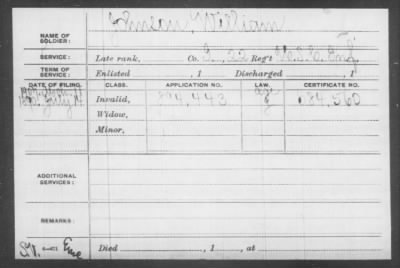 Johnson, William
NAME OF SOLDIER:
SERVICE: Late rank, Co. 22 Reg't U.S.C. Inf.
TERM OF SERVICE: Enlisted , 1 Discharged , 1
DATE OF FILING. CLASS. APPLICATION NO. LAW. CERTIFICATE NO.
July Invalid, 894,443 584,560
Widow,
Minor,
ADDITIONAL SERVICES:
REMARKS:
Died , 1 , at